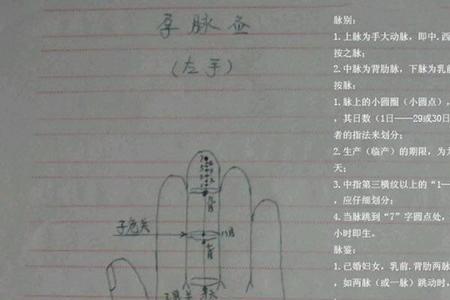 孕脉查
(左手)
子宫关
脉别:
1.上脉为手大动脉，即中.西
按之脉;
2.中脉为背肋脉，下脉为乳前
按脉:
1.脉上的小圆圈（小圆点），
，其日数（1日——29或30日
者的指法来划分;
2.生产（临产）的期限，为
天;
3.中指第三横纹以上的“1—
，应仔细划分;
4.当脉跳到“7”字圆点处，
小时即生。
脉鉴:
1.已婚妇女，乳前.背肋两脉
，如两脉（或一脉）跳动时，